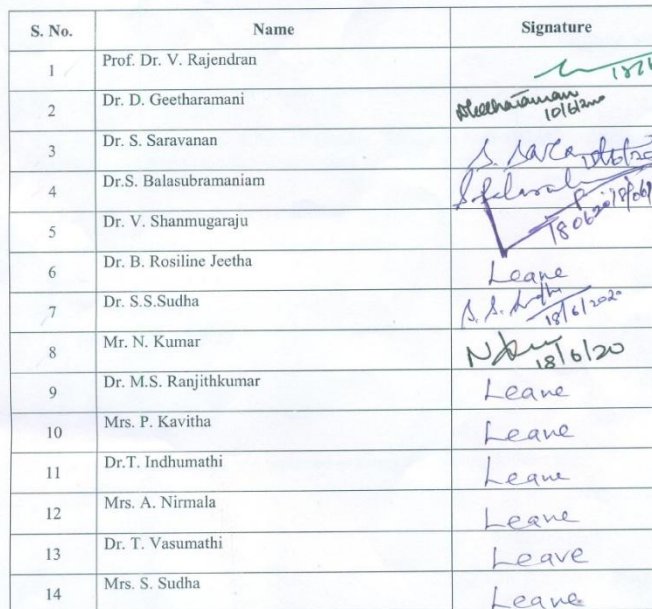 S. No. Name Signature
1 Prof. Dr. V. Rajendran
2 Dr. D. Geetharamani
3 Dr. S. Saravanan
4 Dr.S. Balasubramaniam
5 Dr. V. Shanmugaraju
6 Dr. B. Rosiline Jeetha Leave
7 Dr. S.S.Sudha S. S. Sudha 18/6/2020
8 Mr. N. Kumar 18/6/20
9 Dr. M.S. Ranjithkumar Leave
10 Mrs. P. Kavitha Leave
11 Dr.T. Indhumathi Leave
12 Mrs. A. Nirmala Leave
13 Dr. T. Vasumathi Leave
14 Mrs. S. Sudha Leave